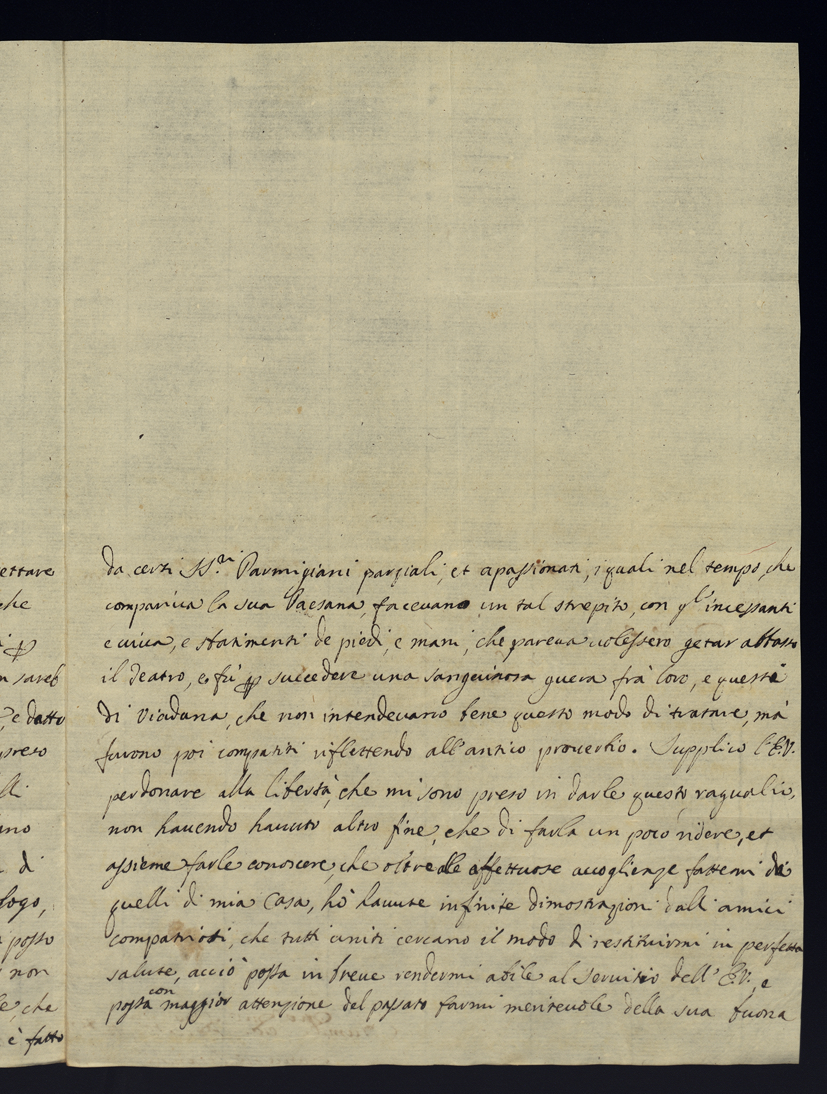 ettare
che
n sareb
e datto
preso
lli
ano
di
fogo,
posto
non
le, che
è fatto
da certi SS.ri Parmigiani parziali, et apassionati, i quali nel tempo, che
compariva la sua Paesana, facevano un tal strepito, con gl' incessanti
e viva, e sbatimenti de piedi, e mani, che pareva volessero getar abbasso
il Teatro, e fù succedere una sanguinosa guera frà loro, e questi
di Viadana, che non intendevano bene questo modo di tratare, mà
furono poi compatiti riflettendo all' antico proverbio. Supplico l'E.V.
perdonare alla libertà, che mi sono preso in darle questo raguaglio,
non havendo havuto altro fine, che di farla un poco ridere, et
assieme farle conoscere, che oltre alle affettuose accoglienze fattemi da
quelli di mia Casa, hò havute infinite dimostrazioni dall' amici
compatrioti, che tutti uniti cercano il modo di restituirmi in perfetta
salute, acciò possa in breve rendermi abile al servitio dell' E.V., e
possa con maggior attenzione del passato farmi meritevole della sua buona